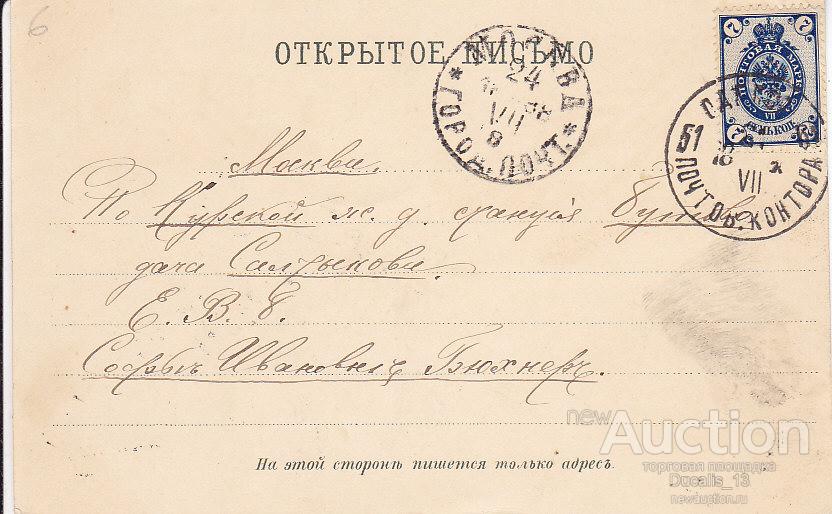 6
ОТКРЫТОЕ ПИСЬМО
7 7
ПОЧТОВАЯ МАРКА
СЕМЬ КОП.
7 7
МОСКВА
24
VII
8
ГОРОД. ПОЧТ.
51
VII
ПОЧТОВ. КОНТОРА
Москва.
По Курской ж. д. станція Бутово
дача Салтыкова.
Е. В. Б.
Софьѣ Ивановнѣ Бюхнеръ.
На этой сторонѣ пишется только адресъ.
newAuction
торговая площадка
Ducalis_13
newauction.ru